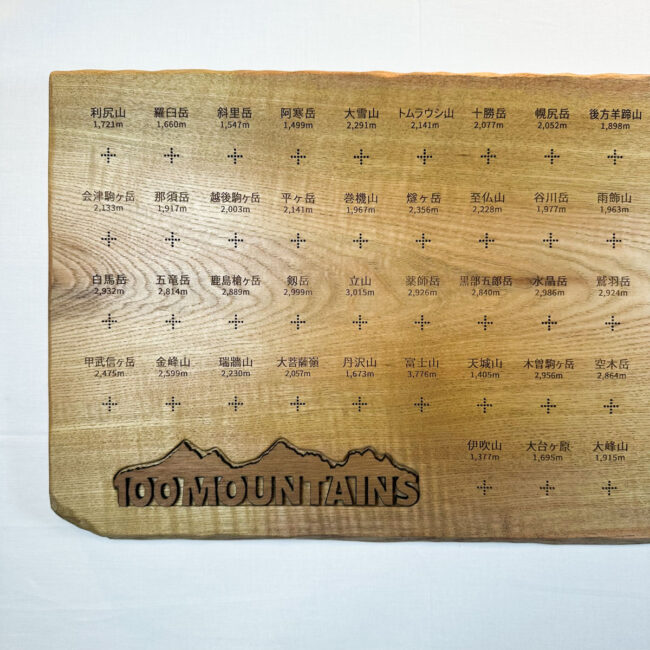 利尻山 羅臼岳 斜里岳 阿寒岳 大雪山 トムラウシ山 十勝岳 幌尻岳 後方羊蹄山
1,721m 1,660m 1,547m 1,499m 2,291m 2,141m 2,077m 2,052m 1,898m
会津駒ヶ岳 那須岳 越後駒ヶ岳 平ヶ岳 巻機山 燧ヶ岳 至仏山 谷川岳 雨飾山
2,133m 1,917m 2,003m 2,141m 1,967m 2,356m 2,228m 1,977m 1,963m
白馬岳 五竜岳 鹿島槍ヶ岳 剱岳 立山 薬師岳 黒部五郎岳 水晶岳 鷲羽岳
2,932m 2,814m 2,889m 2,999m 3,015m 2,926m 2,840m 2,986m 2,924m
甲武信ヶ岳 金峰山 瑞牆山 大菩薩嶺 丹沢山 富士山 天城山 木曽駒ヶ岳 空木岳
2,475m 2,599m 2,230m 2,057m 1,673m 3,776m 1,405m 2,956m 2,864m
伊吹山 大台ヶ原 大峰山
1,377m 1,695m 1,915m
100MOUNTAINS